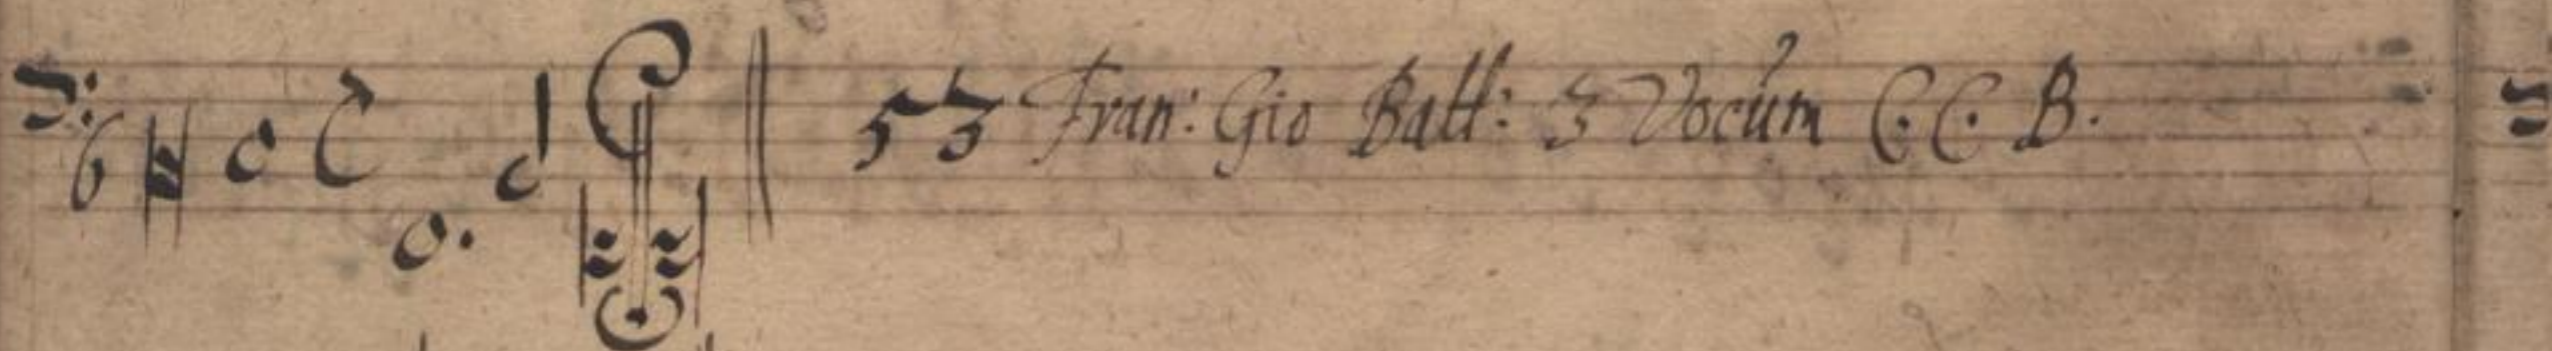 53 Fran: Gio Batt: 3 Vocum C. C. B.